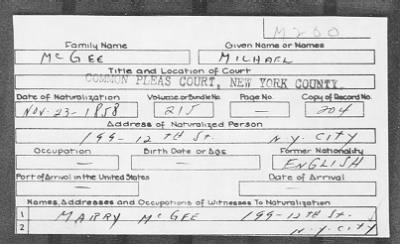 M200
Family Name Given Name or Names
McGEE MICHAEL
Title and Location of Court
COMMON PLEAS COURT, NEW YORK COUNTY.
Date of Naturalization Volume or Bundle No. Page No. Copy of Record No.
Nov-23-1858 215 — 204
Address of Naturalized Person
199-12TH St. N.Y. CITY
Occupation Birth Date or Age Former Nationality
— — ENGLISH
Port of Arrival in the United States Date of Arrival
— —
Names, Addresses and Occupations of Witnesses To Naturalization
1 MARRY McGEE 199-12TH St.
2 N.Y. CITY